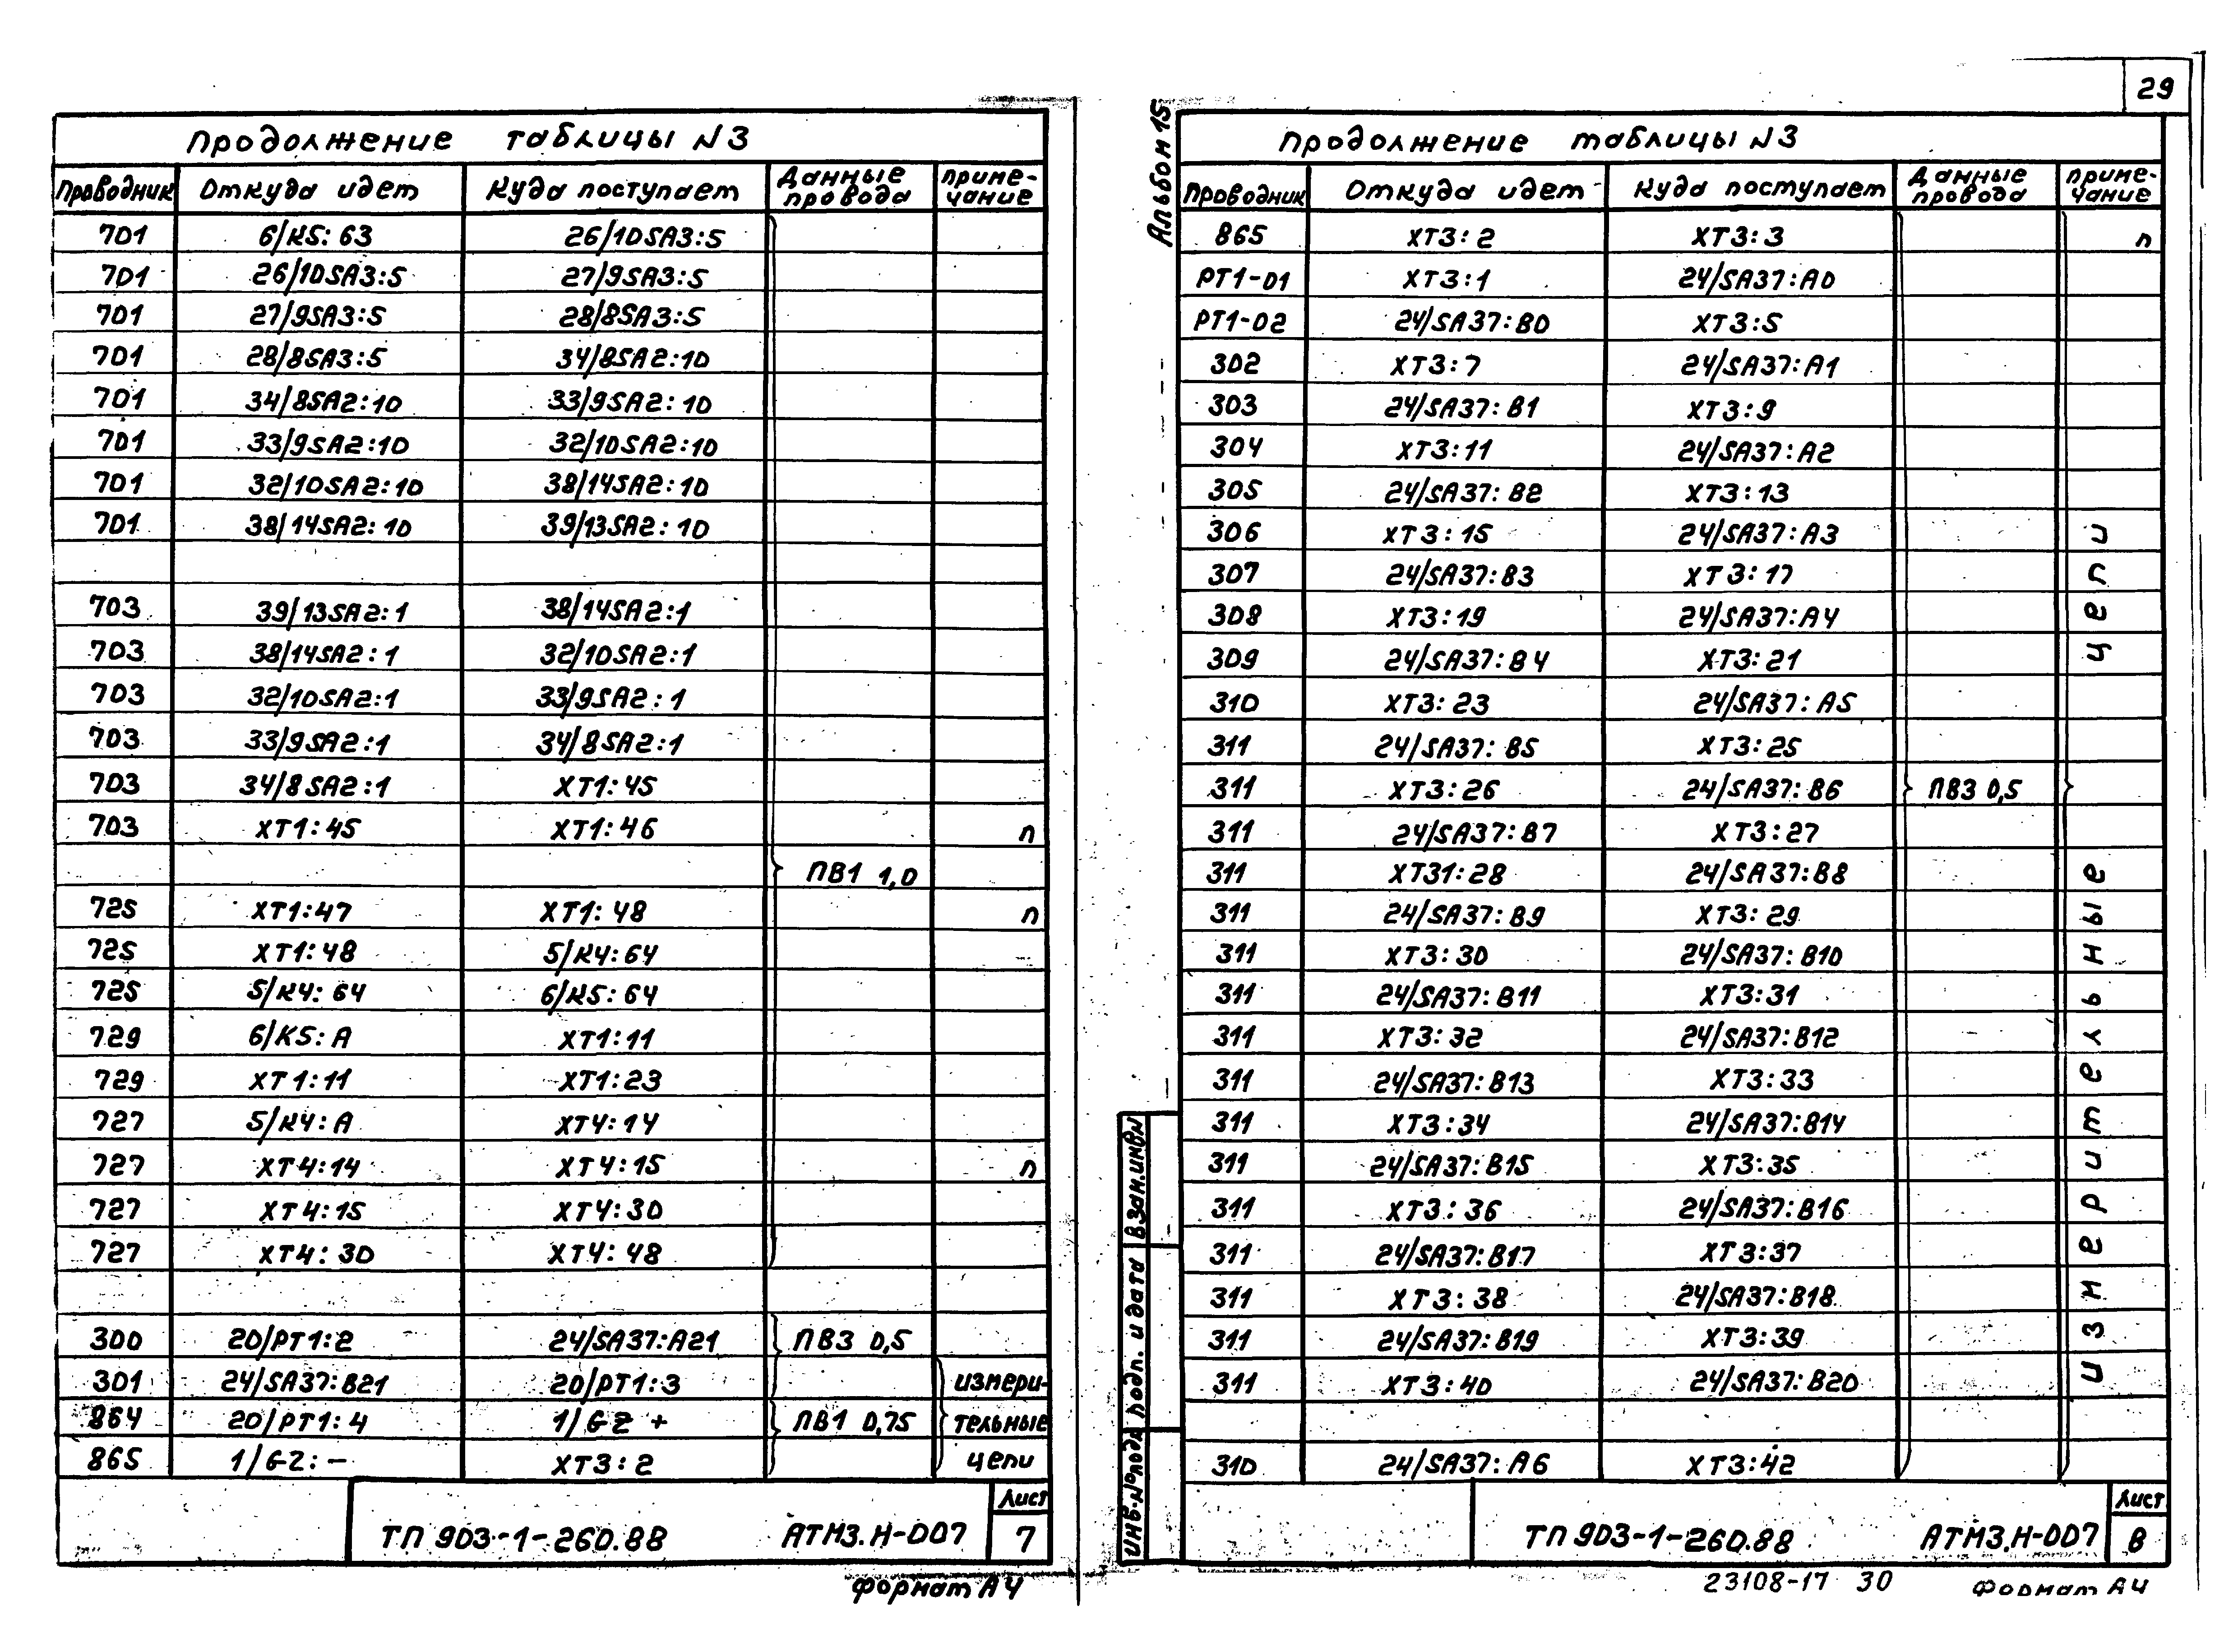 Продолжение таблицы N3
Проводник Откуда идет Куда поступает Данные провода Приме-чание
701 6/К5:63 26/10SA3:5
701 26/10SA3:5 27/9SA3:5
701 27/9SA3:5 28/8SA3:5
701 28/8SA3:5 34/8SA2:10
701 34/8SA2:10 33/9SA2:10
701 33/9SA2:10 32/10SA2:10
701 32/10SA2:10 38/14SA2:10
701 38/14SA2:10 39/13SA2:10
703 39/13SA2:1 38/14SA2:1
703 38/14SA2:1 32/10SA2:1
703 32/10SA2:1 33/9SA2:1
703 33/9SA2:1 34/8SA2:1
703 34/8SA2:1 XT1:45
703 XT1:45 XT1:46 п
ПВ1 1,0
725 XT1:47 XT1:48 п
725 XT1:48 5/К4:64
725 5/К4:64 6/К5:64
729 6/К5:А XT1:11
729 XT1:11 XT1:23
727 5/К4:А XT4:14
727 XT4:14 XT4:15 п
727 XT4:15 XT4:30
727 XT4:30 XT4:48
300 20/РТ1:2 24/SA37:A21 ПВ3 0,5
301 24/SA37:B21 20/РТ1:3 измери-
864 20/РТ1:4 1/GZ + ПВ1 0,75 тельные
865 1/GZ:- XT3:2 цепи
ТП 903-1-260.88 АТМ3.Н-007 Лист 7
Формат А4
29
Альбом 15
Продолжение таблицы N3
Проводник Откуда идет Куда поступает Данные провода Приме-чание
865 XT3:2 XT3:3 п
РТ1-01 XT3:1 24/SA37:A0
РТ1-02 24/SA37:B0 XT3:5
302 XT3:7 24/SA37:A1
303 24/SA37:B1 XT3:9
304 XT3:11 24/SA37:A2
305 24/SA37:B2 XT3:13
306 XT3:15 24/SA37:A3
307 24/SA37:B3 XT3:17
308 XT3:19 24/SA37:A4
309 24/SA37:B4 XT3:21
310 XT3:23 24/SA37:A5
311 24/SA37:B5 XT3:25
311 XT3:26 24/SA37:B6 ПВ3 0,5
311 24/SA37:B7 XT3:27
311 XT31:28 24/SA37:B8
311 24/SA37:B9 XT3:29
311 XT3:30 24/SA37:B10
311 24/SA37:B11 XT3:31
311 XT3:32 24/SA37:B12
311 24/SA37:B13 XT3:33
311 XT3:34 24/SA37:B14
311 24/SA37:B15 XT3:35
311 XT3:36 24/SA37:B16
311 24/SA37:B17 XT3:37
311 XT3:38 24/SA37:B18
311 24/SA37:B19 XT3:39
311 XT3:40 24/SA37:B20
310 24/SA37:A6 XT3:42
Измерительные цепи
Инв.№подл. Подп. и дата Взам.инвN
ТП 903-1-260.88 АТМ3.Н-007 Лист 8
23108-17 30 Формат А4